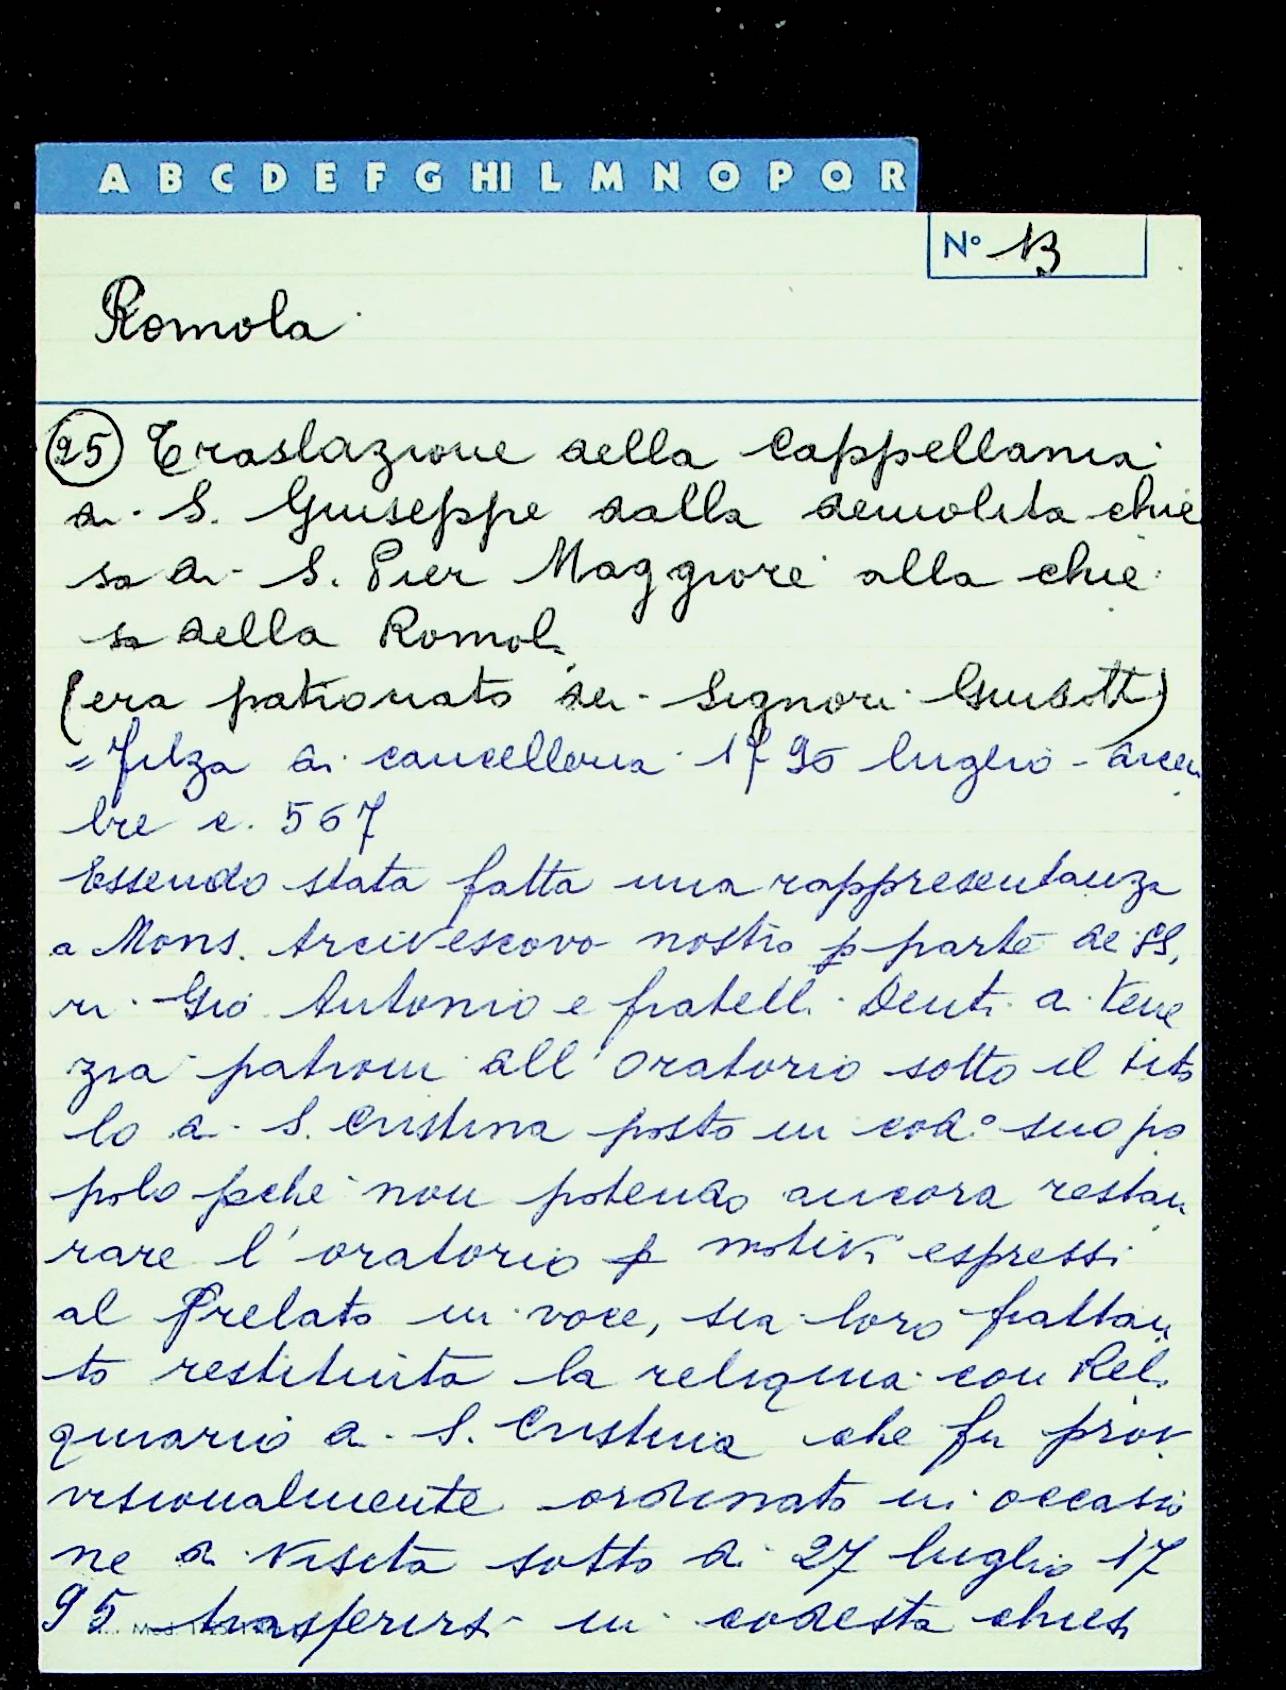 A B C D E F G HI L M N O P Q R
N° 13
Romola
25 Traslazione della Cappellania
di S. Giuseppe dalla demolita chie
sa di S. Pier Maggiore alla chie
sa della Romola
(era patronato dei Signori Guidotti)
= Filza di cancelleria 1795 luglio - dicem
bre c. 567
Essendo stata fatta una rappresentanza
a Mons. Arcivescovo nostro p parte de SS,
ri Gio Antonio e fratelli Denti di Vene
zia patroni dell'oratorio sotto il tito
lo di S. Cristina posto in cod.° suo po
polo pche non potendo ancora restau
rare l'oratorio p motivi espressi
al Prelato in voce, sia loro frattan
to restituita la reliquia con Reli
quiario di S. Cristina che fu prov
visionalmente ordinato in occasio
ne di visita sotto di 27 luglio 17
95 trasferirsi in codesta chiesa